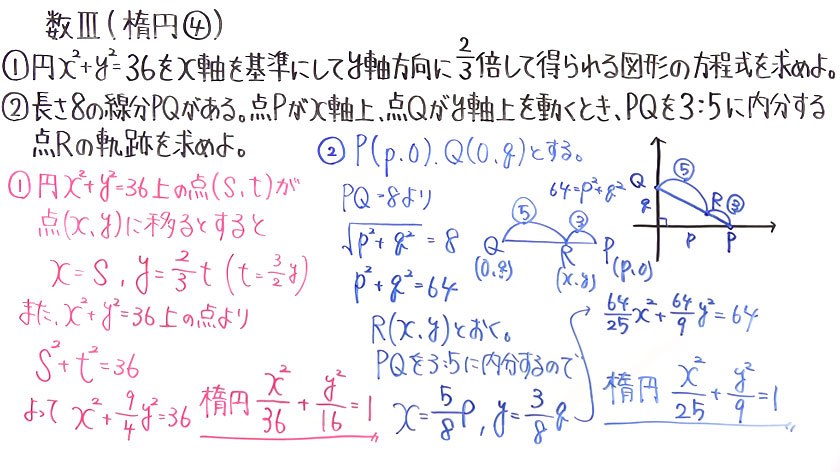 数Ⅲ(楕円④)
①円x²+y²=36をx軸を基準にしてy軸方向に2/3倍して得られる図形の方程式を求めよ。
②長さ8の線分PQがある。点Pがx軸上、点Qがy軸上を動くとき、PQを3:5に内分する
点Rの軌跡を求めよ。
①円x²+y²=36上の点(s,t)が
点(x,y)に移るとすると
x=s, y=2/3t (t=3/2y)
また、x²+y²=36上の点より
s²+t²=36
よって x²+9/4y²=36
楕円 x²/36+y²/16=1
②P(p,0),Q(0,q)とする。
PQ=8より
√p²+q²=8
p²+q²=64
R(x,y)とおく。
PQを3:5に内分するので
x=5/8p, y=3/8q
64=p²+q²
⑤ ③
Q R P
(0,q) (x,y) (p,0)
⑤
Q R ③
q
p P
64/25x²+64/9y²=64
楕円 x²/25+y²/9=1